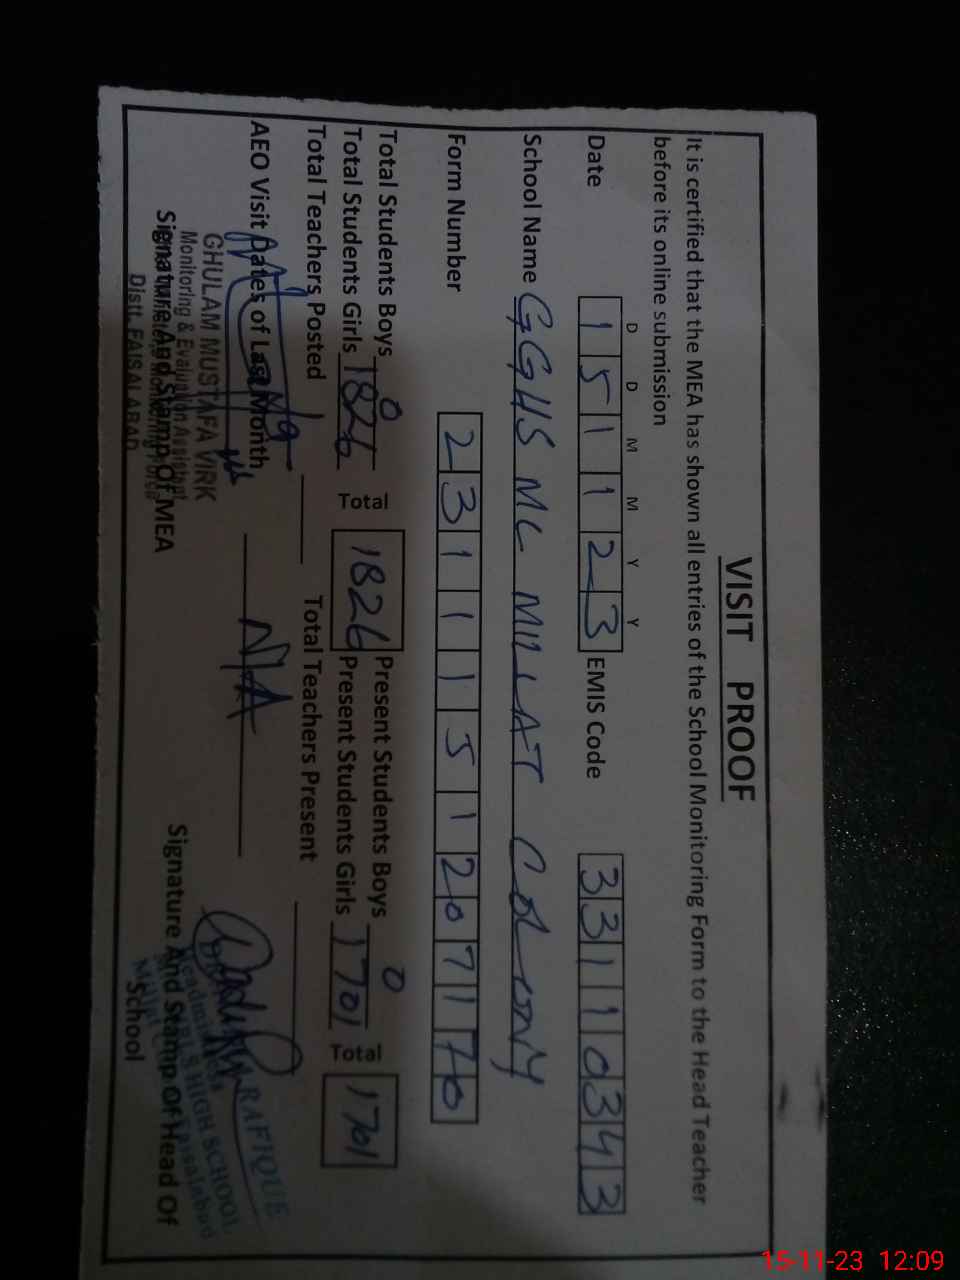 VISIT PROOF
It is certified that the MEA has shown all entries of the School Monitoring Form to the Head Teacher
before its online submission
D D M M Y Y
Date 1 5 1 1 2 3 EMIS Code 3 3 1 1 0 3 4 3
School Name GGHS MC MILLAT COLONY
Form Number 2 3 1 1 1 5 1 2 0 7 1 7 0
Total Students Boys 0 Present Students Boys 0
Total Students Girls 1826 Total 1826 Present Students Girls 1701 Total 1701
Total Teachers Posted Total Teachers Present
AEO Visit Dates of Last Month N/A
GHULAM MUSTAFA VIRK
Monitoring & Evaluation Assistant
Distt. FAISALABAD
Signature And Stamp Of MEA
RAFIQUE
Headmistress
GIRLS HIGH SCHOOL
Faisalabad
Signature And Stamp Of Head Of
School
15-11-23 12:09